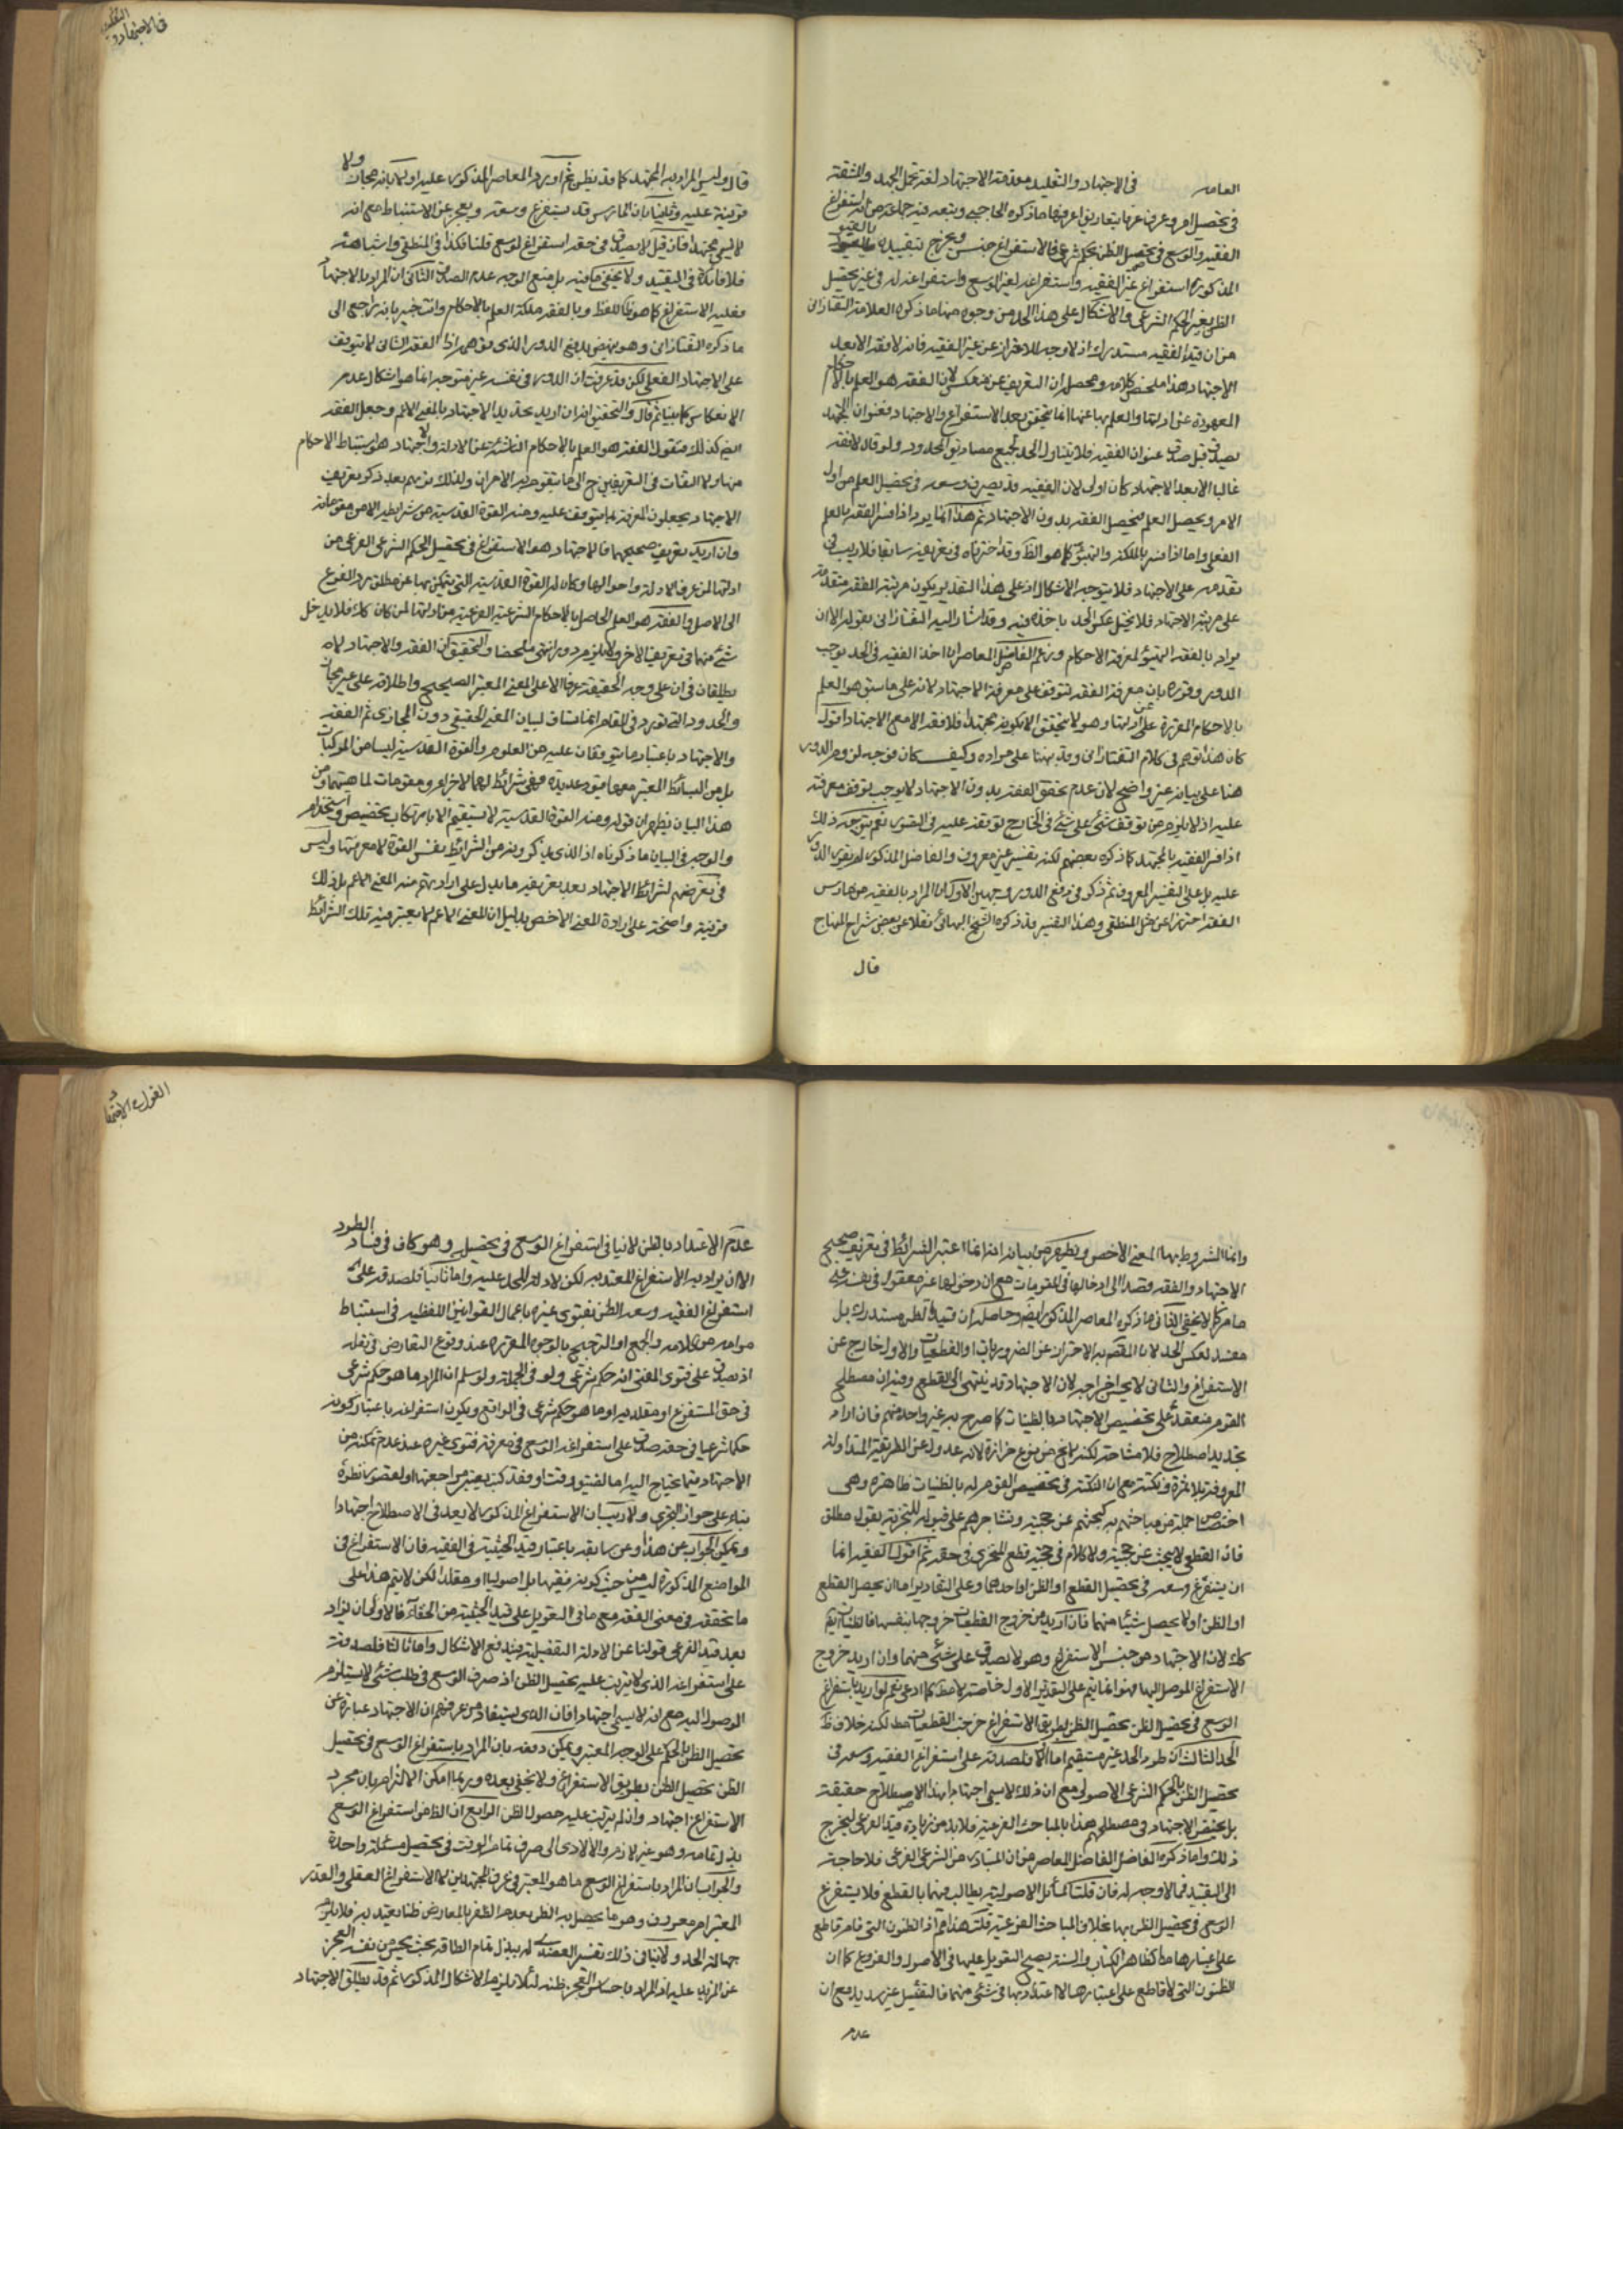 في الاجتهاد والتقليد مقدمة الاجتهاد لغة تحمل الجهد والمشقة
في تحصيل امر وعرفا عرفا بتعاريف اعرفها ما ذكره الحاجبي وتبعه فيه جماعة من انه استفراغ
الفقيه الوسع في تحصيل الظن بحكم شرعي فالاستفراغ جنس ويخرج بتقييده بالقيود
المذكورة استفراغ غير الفقيه واستفراغه لغير الوسع واستفراغه له في غير تحصيل
الظن بغير الحكم الشرعي والاشكال على هذا الحد من وجوه منها ما ذكره العلامة التفتازاني
من ان قيد الفقيه مستدرك اذ لا وجه للاحتراز عن غير الفقيه فانه لا فقه الا بعد
الاجتهاد هذا ملخص كلامه ومحصله ان التعريف غير منعكس لان الفقه هو العلم بالاحكام
المعهودة عن ادلتها والعلم بها عنها انما يتحقق بعد الاستفراغ والاجتهاد فعنوان المجتهد
يصدق قبل صدق عنوان الفقيه فلا يتناول الحد لجميع مصاديق المحدود ولو قال لا فقه
غالبا الا بعد الاجتهاد كان اولى لان الفقيه قد يصرف وسعه في تحصيل العلم من اول
الامر ويحصل العلم فيحصل الفقه بدون الاجتهاد ثم هذا انما يرد اذا فسر الفقه بالعلم
الفعلي واما اذا فسر بالملكة والتهيؤ كما هو الظ وقد اخترناه في تعريفه سابقا فلا ريب في
تقدمه على الاجتهاد فلا يتوجه الاشكال اذ على هذا التقدير يكون مرتبة الفقه متقدمة
على مرتبة الاجتهاد فلا يختل عكس الحد باخذه فيه وقد اشار اليه التفتازاني بقوله الا ان
يراد بالفقه التهيؤ لمعرفة الاحكام وزعم الفاضل المعاصر ان اخذ الفقيه في الحد يوجب
الدور وقرره بان معرفة الفقه تتوقف على معرفة الاجتهاد لانه على ما سبق هو العلم
بالاحكام المقررة عن ادلتها وهو لا يتحقق الا بكونه مجتهدا فلا فقه الا مع الاجتهاد اقول
كان هذا توهم في كلام التفتازاني وقد نبهنا على مراده وكيف كان فوجه لزوم الدور
هنا على بيانه غير واضح لان عدم تحقق الفقه بدون الاجتهاد لا يوجب توقف معرفته
عليه اذ لا يلزم من توقف شئ على شئ في الخارج توقفه عليه في التصور نعم يتوجه ذلك
اذا فسر الفقيه بالمجتهد كما ذكره بعضهم لكنه تفسير غير معروف والفاضل المذكور لم يقرر الدور
عليه بل على التفسير المعروف ثم ذكر في دفع الدور وجهين الاول ان المراد بالفقيه من مارس
الفقه احترازا عن مثل المنطقي وهذا التفسير قد ذكره الشيخ البهائي نقلا عن بعض شراح المنهاج
قال
في الاجتهاد والتقليد
قال وليس المراد به المجتهد كما قد يظن ثم اورد المعاصر المذكور عليه اولا بانه مجاز ولا
قرينة عليه وثانيا بان الممارس قد يستفرغ وسعه ويعجز عن الاستنباط مع انه
لا يسمى مجتهدا فان قيل لا يصدق في حقه استفراغ الوسع قلنا فكذا في المنطقي واشباهه
فلا فائدة في التقييد ولا يخفى ما فيه بل منع الوجه عدم الصدق الثاني ان المراد بالاجتهاد
فعلية الاستفراغ كما هو ظ اللفظ وبالفقه ملكة العلم بالاحكام وانت خبير بانه راجع الى
ما ذكره التفتازاني وهو ينهض بدفع الدور الذي توهمه اذ الفقه الشاني لا يتوقف
على الاجتهاد الفعلي لكن قد عرفت ان الدور في نفسه غير متوجه انما هو اشكال عدم
الانعكاس كما بينا ثم قال والتحقيق انه ان اريد تحديد الاجتهاد بالمعنى الاعم وجعل الفقه
ايض كذلك فنقول الفقه هو العلم بالاحكام الناشئة عن الادلة والاجتهاد هو استنباط الاحكام
منها ولا التفات في التعريفين ح الى ما يتقوم به الامران ولذلك تريهم بعد ذكر تعريف
الاجتهاد يجعلون المعرفة بما يتوقف عليه ومنه القوة القدسية من شرايطه لا من مقوماته
وان اريد تعريف صحيحهما فالاجتهاد هو الاستفراغ في تحصيل الحكم الشرعي الفرعي من
ادلتها لمن عرف الادلة واحوالها وكان له القوة القدسية التي يتمكن بها عن مطلق رد الفرع
الى الاصل والفقه هو العلم الحاصل بالاحكام الشرعية الفرعية من ادلتها لمن كان كك فلا يدخل
شئ منهما في تعريف الاخر ولا يلزم دور انتهى ملخصا والتحقيق ان الفقه والاجتهاد لا
يطلقان في ان على وجه الحقيقة عرفا الا على المعنى المعتبر الصحيح واطلاقه على غيره مجاز
والحدود التي تورد في المقام انما تساق لبيان المعنى الحقيقي دون المجازي ثم الفقه
والاجتهاد باعتبار ما يتوقفان عليه من العلوم والقوة القدسية ليسا من المركبات
بل من البسائط المعتبر معها قيود عديدة فهي شرائط لهما لا اجزاء ومقومات لماهيتهما ومن
هذا البيان يظهر ان قوله ومنه القوة القدسية لا يستقيم الا بارتكاب تخصيص واستخدام
والوجه في البيان ما ذكرناه اذ الذي يذكرونه من الشرائط نفس القوة لا معرفتها وليس
في تعرضهم لشرائط الاجتهاد بعد تعريفه ما يدل على ارادتهم منه المعنى الاعم بل ذلك
قرينة واضحة على ارادة المعنى الاخص بدليل ان المعنى الاعم لا يعتبر فيه تلك الشرائط
وانما المشروط بها المعنى الاخص ويظهر من بيانه انه انما اعتبر الشرائط في تعريف صحيح
الاجتهاد والفقه قصدا الى ادخالها في المقومات مع ان دخولها غير معقول في نفسه على
ما مر كما لا يخفى الثاني ما ذكره المعاصر المذكور ايض وحاصله ان قيد الظن مستدرك بل
مفسد لعكس الحد لان المقصود به الاحتراز عن الضروريات او القطعيات والاول خارج عن
الاستفراغ والثاني لا يحسن اخراجه لان الاجتهاد قد ينتهي الى القطع وفيه ان مصطلح
القوم منعقد على تخصيص الاجتهاد بالظنيات كما صرح به غير واحد منهم فان اراد
تجديد اصطلاح فلا مشاحة لكنه لا يخ عن نوع حزازة لانه عدول عن الطريقة المتداولة
المعروفة بلا ثمرة ونكتة مع ان النكتة في تخصيص القوم له بالظنيات ظاهرة وهي
اختصاص جملة من مباحثهم به كبحثهم عن حجيته وتشاجرهم على قبوله للتجزية بقول مطلق
فان القطع لا يبحث عن حجيته ولا كلام في حجية قطع المتجزي في حقه ثم اقول الفقيه انما
ان يستفرغ وسعه في تحصيل القطع او الظن او احدهما وعلى التقادير اما ان يحصل القطع
او الظن او لا يحصل شيئا منهما فان اريد من خروج القطعيات خروجها بنفسها فالظنيات ايض
كك لان الاجتهاد من جنس الاستفراغ وهو لا يصدق على شئ منهما وان اريد خروج
الاستفراغ الموصل اليها فهو انما يتم على التقدير الاول خاصة لا مط كما ادعى نعم لو اريد باستفراغ
الوسع في تحصيل الظن تحصيل الظن بطريق الاستفراغ خرجت القطعيات مط لكنه خلاف ظ
الحد الثالث ان طرد الحد غير مستقيم اما اولا فلصدقه على استفراغ الفقيه وسعه في
تحصيل الظن بالحكم الشرعي الاصولي مع ان ذلك لا يسمى اجتهادا بهذا الاصطلاح حقيقة
بل يختص الاجتهاد في مصطلحهم هذا بالمباحث الفرعية فلا بد من زيادة قيد الفرعي ليخرج
ذلك واما ما ذكره الفاضل المعاصر من ان المتبادر من الشرعي الفرعي فلا حاجة
الى التقييد فمما لا وجه له فان قلت المسائل الاصولية يطالب فيها بالقطع فلا يستفرغ
الوسع في تحصيل الظن بها بخلاف المباحث الفرعية قلت هذا وهم اذ الظنون التي قام قاطع
على اعتبارها مط كظاهر الكتاب والسنة يصح التعويل عليها في الاصول والفروع كما ان
الظنون التي لا قاطع على اعتبارها لا اعتداد بها في شئ منهما فالتفصيل غير سديد مع ان
عدم
القول في الاجتهاد
عدم الاعتداد بالظن لا ينافي استفراغ الوسع في تحصيله وهو كاف في فساد الطرد
الا ان يراد به الاستفراغ المعتد به لكن لا دلالة للحد عليه واما ثانيا فلصدقه على
استفراغ الفقيه وسعه الظن بفتوى غيره باعمال القوانين اللفظية في استنباط
مرامه من كلامه والجمع او الترجيح بالوجوه المقررة عند وقوع التعارض في نقله
اذ يصدق على فتوى المفتي انه حكم شرعي ولو في الجملة ولو سلم ان المراد ما هو حكم شرعي
في حق المستفرغ او مقلديه او ما هو حكم شرعي في الواقع ويكون استفراغه باعتبار كونه
حكما شرعيا في حقه صدق على استفراغه الوسع في معرفة فتوى غيره عند عدم تمكنه من
الاجتهاد فيما يحتاج اليه اما لضيق وقت او فقد كتب يعتبر مراجعتها او لقصور نظره
بناء على جواز التجزي ولا ريب ان الاستفراغ المذكور لا يعد في الاصطلاح اجتهادا
ويمكن الجواب عن هذا وعن سابقه باعتبار قيد الحيثية في الفقيه فان الاستفراغ في
المواضع المذكورة ليس من حيث كونه فقيها بل اصوليا او مقلدا لكن لا يتم هذا على
ما تحققه في معنى الفقه مع ما في التعويل على قيد الحيثية من الخفاء فالاولى ان يزاد
بعد قيد الفرعي قولنا عن الادلة التفصيلية فيندفع الاشكال واما ثالثا فلصدقه
على استفراغه الذي لا يترتب عليه تحصيل الظن اذ صرف الوسع في طلب شئ لا يستلزم
الوصول اليه مع انه لا يسمى اجتهادا فان الذي يستفاد من عرفهم ان الاجتهاد عبارة عن
تحصيل الظن بالحكم على الوجه المعتبر ويمكن دفعه بان المراد باستفراغ الوسع في تحصيل
الظن تحصيل الظن بطريق الاستفراغ ولا يخفى بعده وربما امكن الالتزام بان مجرد
الاستفراغ اجتهاد وان لم يترتب عليه حصول الظن الرابع ان الظ من استفراغ الوسع
بذل تمامه وهو غير لازم والا لادى الى صرف تمام الوقت في تحصيل مسئلة واحدة
والجواب ان المراد باستفراغ الوسع ما هو المعتبر في عرف المجتهدين لا الاستفراغ العقلي والقدر
المعتبر امر معروف وهو ما يحصل به الظن بعدم الظفر بالمعارض ظنا يعتد به فلا يلزم
جهالة الحد ولا ينافي ذلك تفسير العضدي له ببذل تمام الطاقة بحيث يحس من نفسه العجز
عن المزيد عليه اذ المراد باحساس العجز ظنه لئلا يلزم الاشكال المذكور ثم قد يطلق الاجتهاد